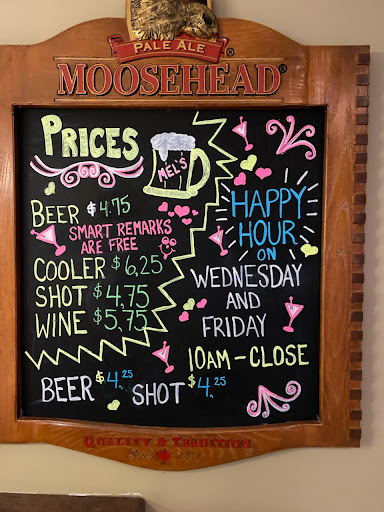 PALE ALE ®
MOOSEHEAD®
PRICES
MEL'S
BEER $4.75
SMART REMARKS
ARE FREE
COOLER $6.25
SHOT $4.75
WINE $5.75
HAPPY
HOUR
ON
WEDNESDAY
AND
FRIDAY
10AM - CLOSE
BEER $4.25 SHOT $4.25
QUALITY & TRADITION